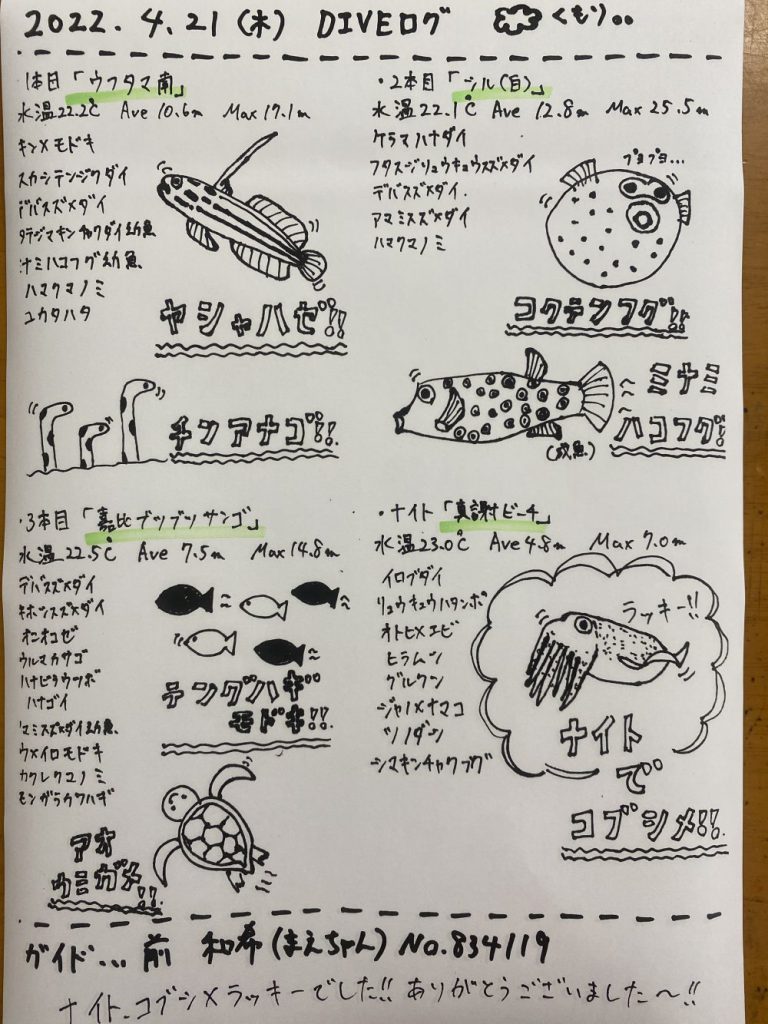 2022. 4. 21 (木) DIVEログ くもり..
1本目「ウフタマ南」
水温22.2℃ Ave 10.6m Max 17.1m
キンメモドキ
スカシテンジクダイ
デバスズメダイ
タテジマキンチャクダイ幼魚
ミナミハコフグ幼魚
ハマクマノミ
ユカタハタ
ヤシャハゼ!!
チンアナゴ!!
・2本目「シル(白)」
水温22.1℃ Ave 12.8m Max 25.5m
ケラマハナダイ
フタスジリュウキュウスズメダイ
デバスズメダイ.
アマミスズメダイ
ハマクマノミ
プヨプヨ...
コクテンフグ!!
ミナミ
ハコフグ!
(成魚)
・3本目「嘉比ブツブツサンゴ」
水温22.5℃ Ave 7.5m Max 14.8m
デバスズメダイ
キホシスズメダイ
オニオコゼ
ウルマカサゴ
ハナビラウツボ
ハナゴイ
アマミスズメダイ幼魚
ウメイロモドキ
カクレクマノミ
モンガラカワハギ
テングハギ
モドキ!!
アオ
ウミガメ!!
・ナイト「真謝ビーチ」
水温23.0℃ Ave 4.8m Max 7.0m
イロブダイ
リュウキュウハタンポ
オトヒメエビ
ヒラムシ
グルクン
ジャノメナマコ
ツノダシ
シマキンチャクフグ
ラッキー!!
ナイト
で
コブシメ!!
ガイド... 前 和希(まえちゃん) No.834119
ナイト、コブシメラッキーでした!! ありがとうございました〜!!